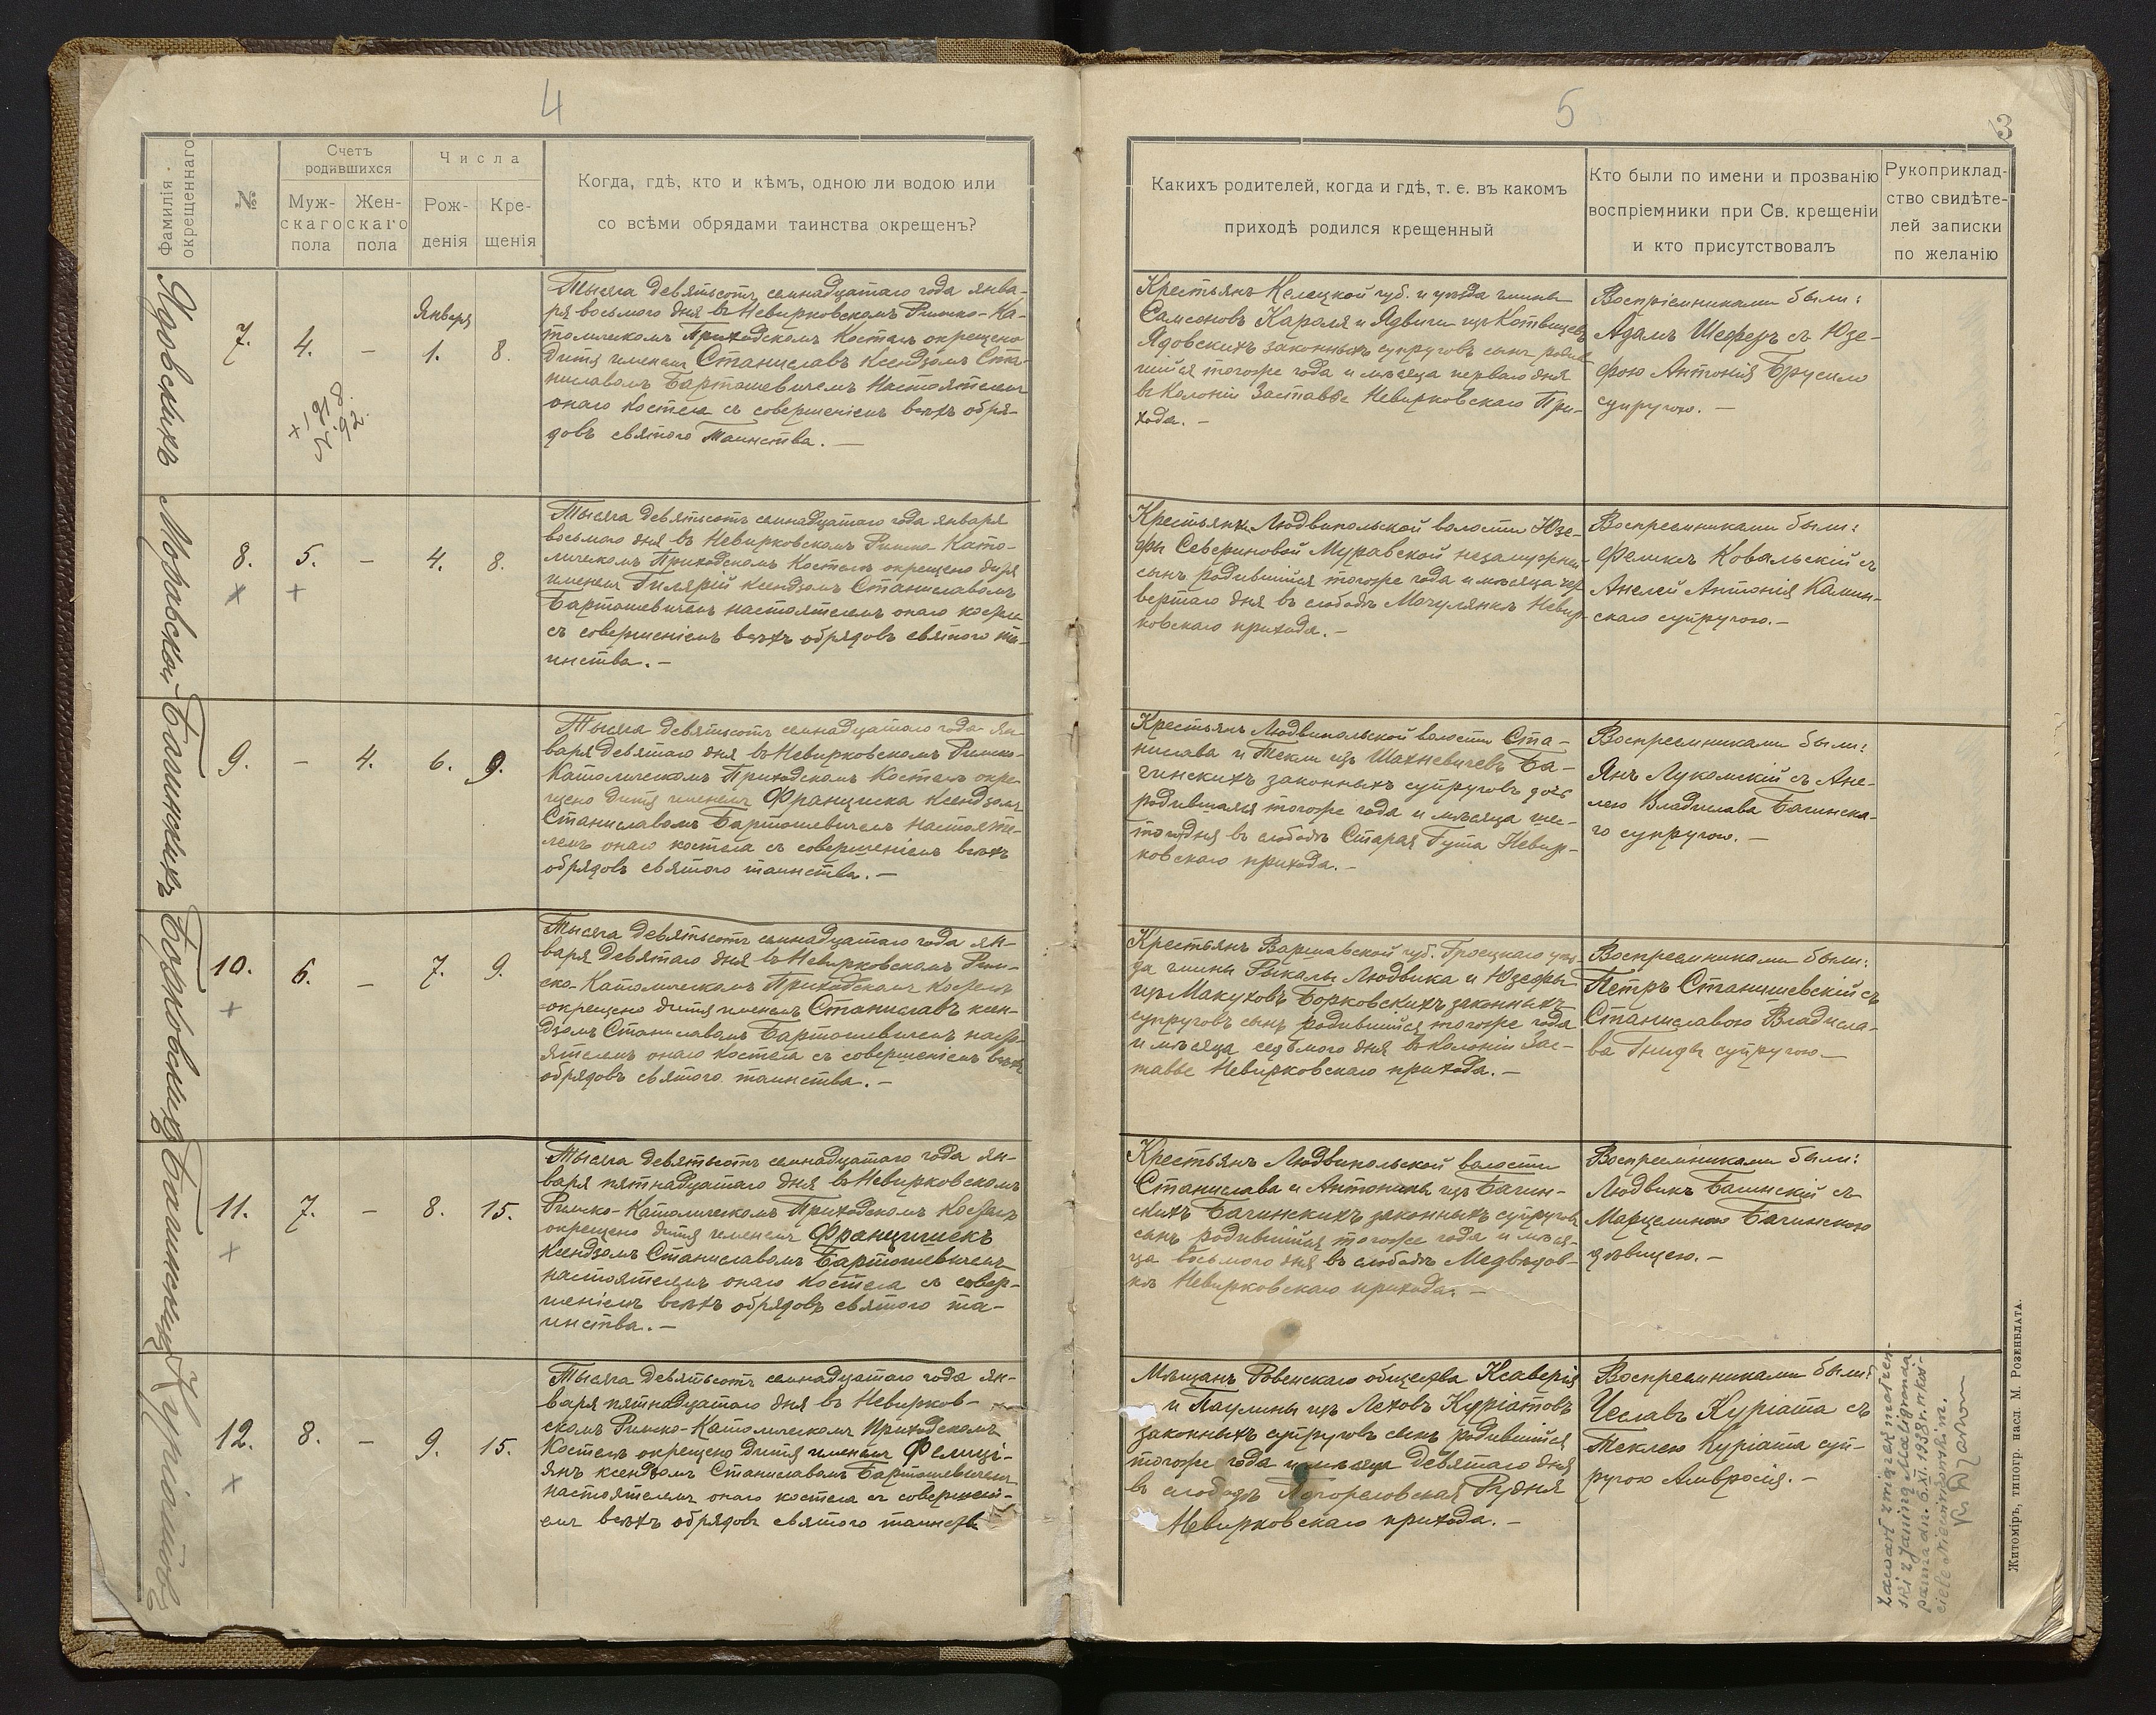 4
Фамилія окрещеннаго
№
Счетъ родившихся
Мужскаго пола
Женскаго пола
Числа
Рожденія
Крещенія
Когда, гдѣ, кто и кѣмъ, одною ли водою или
со всѣми обрядами таинства окрещенъ?
Ядовскихъ
7.
4.
–
Января
1.
8.
Тысяча девятьсотъ семнадцатаго года янва-
ря восьмого дня въ Невирковскомъ Римско-Ка-
толическомъ Приходскомъ Костелѣ окрещено
дитя именем Станиславъ Ксендзомъ Ста-
ниславомъ Бартошевичемъ Настоятелем
онаго костела съ совершеніемъ всѣхъ обря-
довъ святого Таинства. –
Моравской
8.
5.
–
4.
8.
Тысяча девятьсотъ семнадцатаго года января
восьмого дня въ Невирковскомъ Римско-Като-
лическомъ Приходскомъ Костелѣ окрещено дитя
именем Гилярій ксендзомъ Станиславомъ
Бартошевичемъ настоятелемъ онаго костела
съ совершеніемъ всѣхъ обрядовъ святого та-
инства. –
Багинскихъ
9.
–
4.
6.
9.
Тысяча девятьсотъ семнадцатаго года ян-
варя девятаго дня въ Невирковскомъ Римско-
Католическомъ Приходскомъ Костелѣ окре-
щено дитя именем Франциска ксендзомъ
Станиславомъ Бартошевичемъ настояте-
лемъ онаго костела съ совершеніемъ всѣхъ
обрядовъ святого таинства. –
Борковскихъ
10.
6.
–
7.
9.
Тысяча девятьсотъ семнадцатаго года ян-
варя девятаго дня въ Невирковскомъ Рим-
ско-Католическомъ Приходскомъ Костелѣ
окрещено дитя именемъ Станиславъ ксен-
дзомъ Станиславомъ Бартошевичемъ насто-
ятелемъ онаго костела съ совершеніемъ всѣхъ
обрядовъ святого таинства. –
Багинскихъ
11.
7.
–
8.
15.
Тысяча девятьсотъ семнадцатаго года ян-
варя пятнадцатаго дня въ Невирковскомъ
Римско-Католическомъ Приходскомъ Костелѣ
окрещено дитя именем Францишекъ
ксендзомъ Станиславомъ Бартошевичемъ
настоятелемъ онаго костела съ совер-
шеніемъ всѣхъ обрядовъ святого та-
инства. –
Куріатовъ
12.
8.
–
9.
15.
Тысяча девятьсотъ семнадцатаго года ян-
варя пятнадцатаго дня въ Невирков-
скомъ Римско-Католическомъ Приходскомъ
Костелѣ окрещено дитя именем Фелиці-
янъ ксендзомъ Станиславомъ Бартошевичемъ
настоятелемъ онаго костела съ совершені-
емъ всѣхъ обрядовъ святого таинства
5
3
Какихъ родителей, когда и гдѣ, т. е. въ какомъ
приходѣ родился крещенный
Кто были по имени и прозванію
воспріемники при Св. крещеніи
и кто присутствовалъ
Рукоприклад-
ство свидѣте-
лей записки
по желанію
Крестьянъ Келецкой губ. и уѣзда гмины
Самсоновъ Кароля и Ядвиги изъ Котвицевъ
Ядовскихъ законныхъ супруговъ сынъ родив
шійся тогоже года и мѣсяца перваго дня
въ Колоніи Заставье Невирковскаго При-
хода. –
Воспріемниками были:
Адамъ Шеферъ съ Юзе-
фою Антонія Брусило
супругою. –
Крестьянки Людвипольской волости Юзе-
фы Севериновой Муравской незамужней
сынъ родившійся тогоже года и мѣсяца чет
вертаго дня въ слободѣ Мочулянкѣ Невир-
ковскаго прихода. –
Воспреемниками были:
Феликсъ Ковальскій съ
Анелей Антонія Камин-
скаго супругою. –
Крестьянъ Людвипольской волости Ста-
нислава и Текли изъ Шахневичевъ Ба-
гинскихъ законныхъ супруговъ дочь
родившаяся тогоже года и мѣсяца шес-
того дня въ слободѣ Старая Гута Невир-
ковскаго прихода. –
Воспреемниками были:
Янъ Лукомскій съ Ане-
лею Владислава Багинска-
го супругою. –
Крестьянъ Варшавской губ. Гроецкаго уѣз-
да гмины Рыкалы Людвика и Юзефы
изъ Макуховъ Борковскихъ законныхъ
супруговъ сынъ родившійся тогоже года
и мѣсяца седьмого дня въ Колоніи Зас-
тавье Невирковскаго прихода. –
Воспреемниками были:
Петръ Станишевскій съ
Станиславою Владисла-
ва Гниды супругою –
Крестьянъ Людвипольской волости
Станислава и Антонины изъ Багин-
скихъ Багинскихъ законныхъ супруговъ
сынъ родившійся тогоже года и мѣся-
ца восьмого дня въ слободѣ Медвѣдов-
кѣ Невирковскаго прихода. –
Воспреемниками были:
Людвикъ Багинскій съ
Марцелиною Багинскою
дѣвицею. –
Мѣщанъ Ровенскаго общества Ксаверія
и Паулины изъ Леховъ Куріатовъ
законныхъ супруговъ сынъ родившійся
тогоже года и мѣсяца девятаго дня
въ слободѣ Погореловская Рудня
Невирковскаго прихода. –
Воспреемниками были:
Чеславъ Куріата съ
Теклею Куріата суп-
ругою Амвросія. –
Zawarł związek małżen-
ski z Janiną Malignonda
panna dn. 6.XI.1938r. w koś-
ciele Niewirkowskim.
Житоміръ, типогр. насл. М. Розенблата.